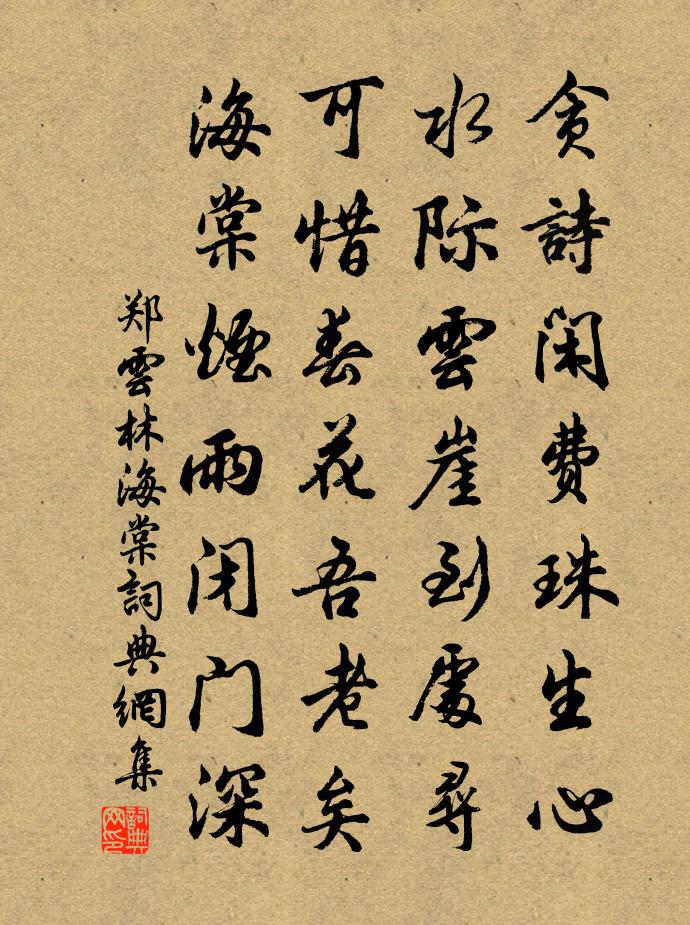 貪詩閑費珠生心
水际雲崖到處尋
可惜春花吾老矣
海棠煙雨闭门深
郑雲林海棠詞典網集
詞典網印